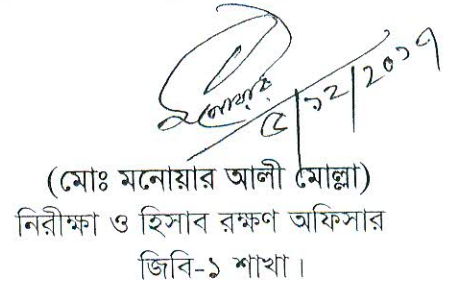 মনোয়ার
৫/১২/২০১৭
(মোঃ মনোয়ার আলী মোল্লা)
নিরীক্ষা ও হিসাব রক্ষণ অফিসার
জিবি-১ শাখা।